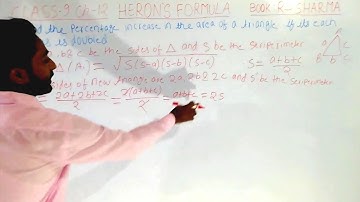 CLASS-9 CH-12 HERON'S FORMULA BOOK-R-SHARMA
the Percentage increase in the area of a triangle if its each
is doubled
b & c be the sides of △ and s be the Semiperimeter
△ (A₁) = √s(s-a)(s-b)(s-c) s = a+b+c/2
sides of New triangle are 2a, 2b & 2c and s' be the Semiperimeter
= 2a+2b+2c/2 = 2(a+b+c)/2 = a+b+c = 2s